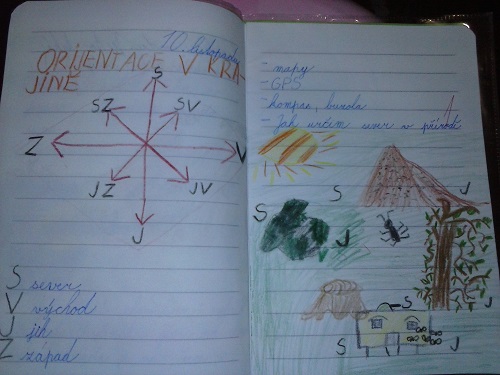 10. listopadu
ORIJENTACE V KRA-
JINĚ
S
SZ SV
Z V
JZ JV
J
S sever
V východ
J jih
Z západ
- mapy
- GPS
- kompas, buzola
- Jak určím sever v přírodě
S J
S J
S J
S J